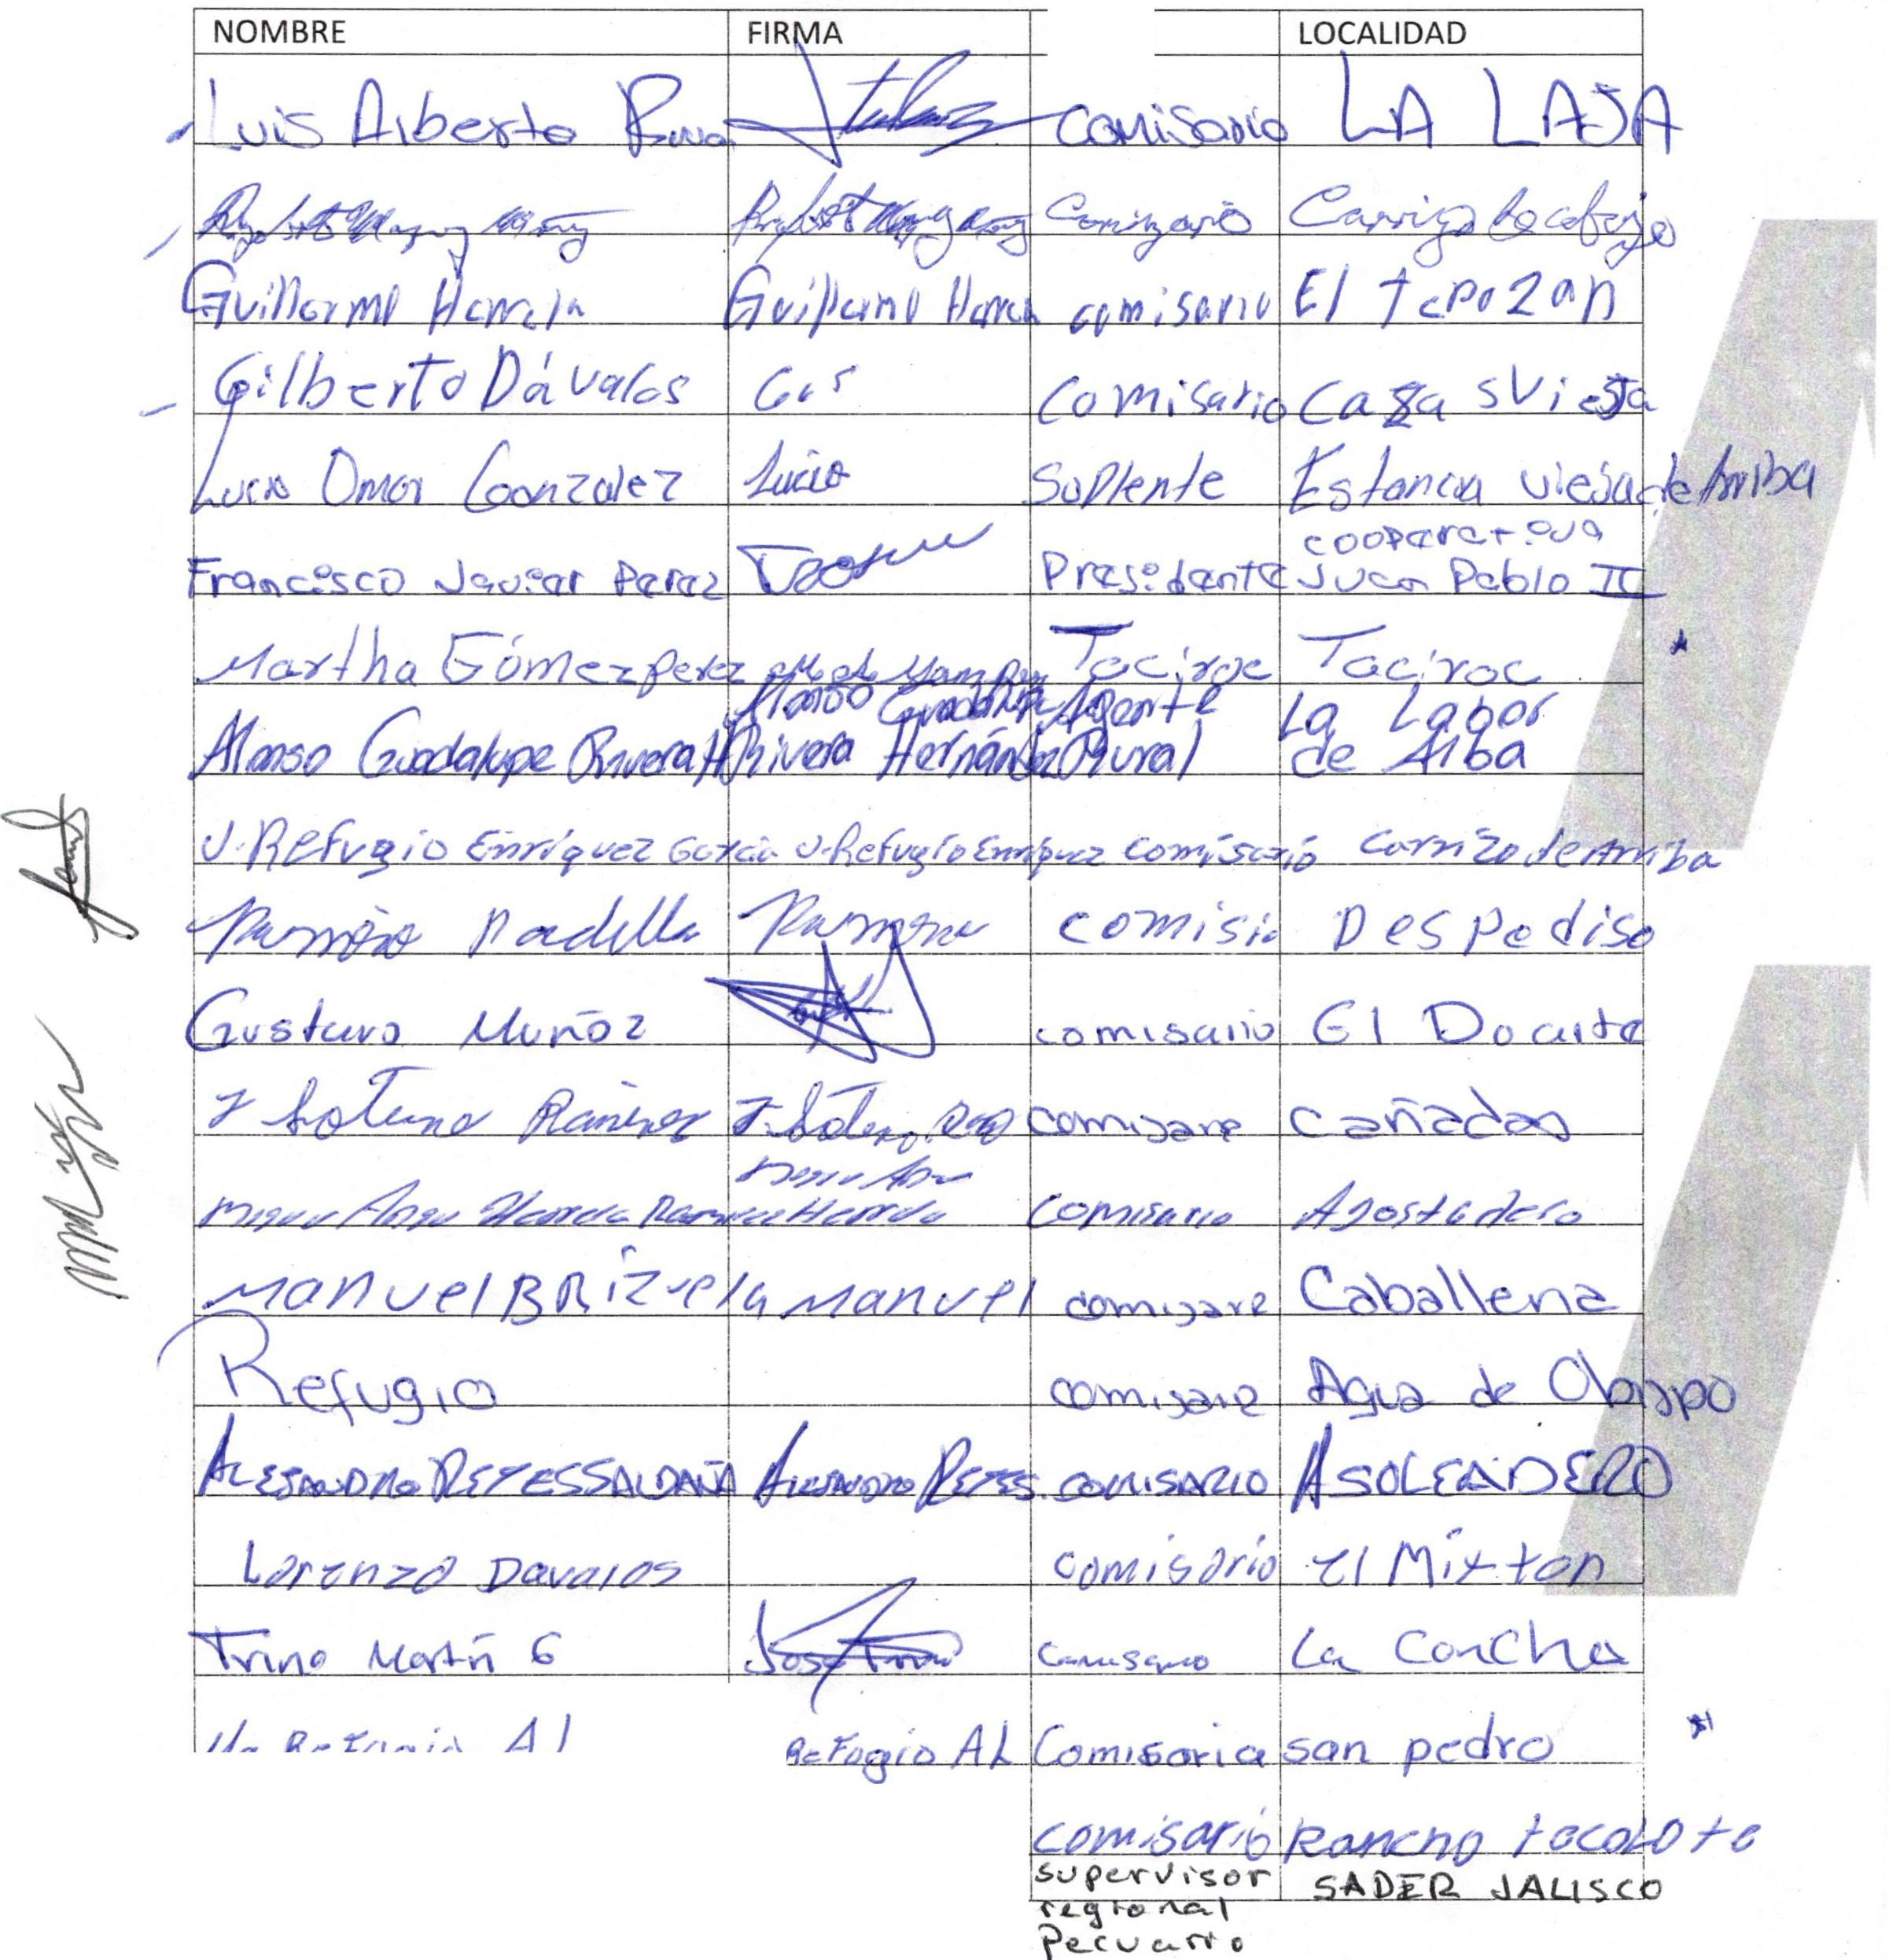 NOMBRE FIRMA LOCALIDAD
Luis Alberto comisario LA LAJA
Comizario Carrizo de abajo
Guillermo Herrera Guillermo Herrera comisario El tepozan
Gilberto Dávalos Comisario Casas Viejas
Lucio Omar Gonzalez Lucio Suplente Estancia vieja de Arriba
cooperativa
Francisco Javier Perez Presidente Juan Pablo II
Martha Gómez perez Taciroc Taciroc
Alonso Guadalupe Agente La Labor
Alonso Guadalupe Rivera H Rivera Hernández Rural de Alba
J. Refugio Enríquez García J. Refugio Enríquez comisario carrizo de Arriba
Ramón Padilla Ramón comisio Despediso
Gustavo Muñoz comisario El Ducarte
J Sotero Ramirez J. Sotero comisare cañadas
Miguel Ange Herrera Ramirez Herrera Comisario Agostadero
Manuel BRIZuela Manuel comisare Caballeria
Refugio comisare Agua de Obispo
ALEJANDRO REYES SALDAÑA ALEJANDRO REYES. COMISARIO ASOLEADERO
Lorenzo Davalos comisario el Mixton
Trino Martín G José Trino Comisario La Concha
Ma Refugio AL Refugio AL Comisaria san pedro
comisario Rancho tecolote
supervisor SADER JALISCO
regional
Pecuario